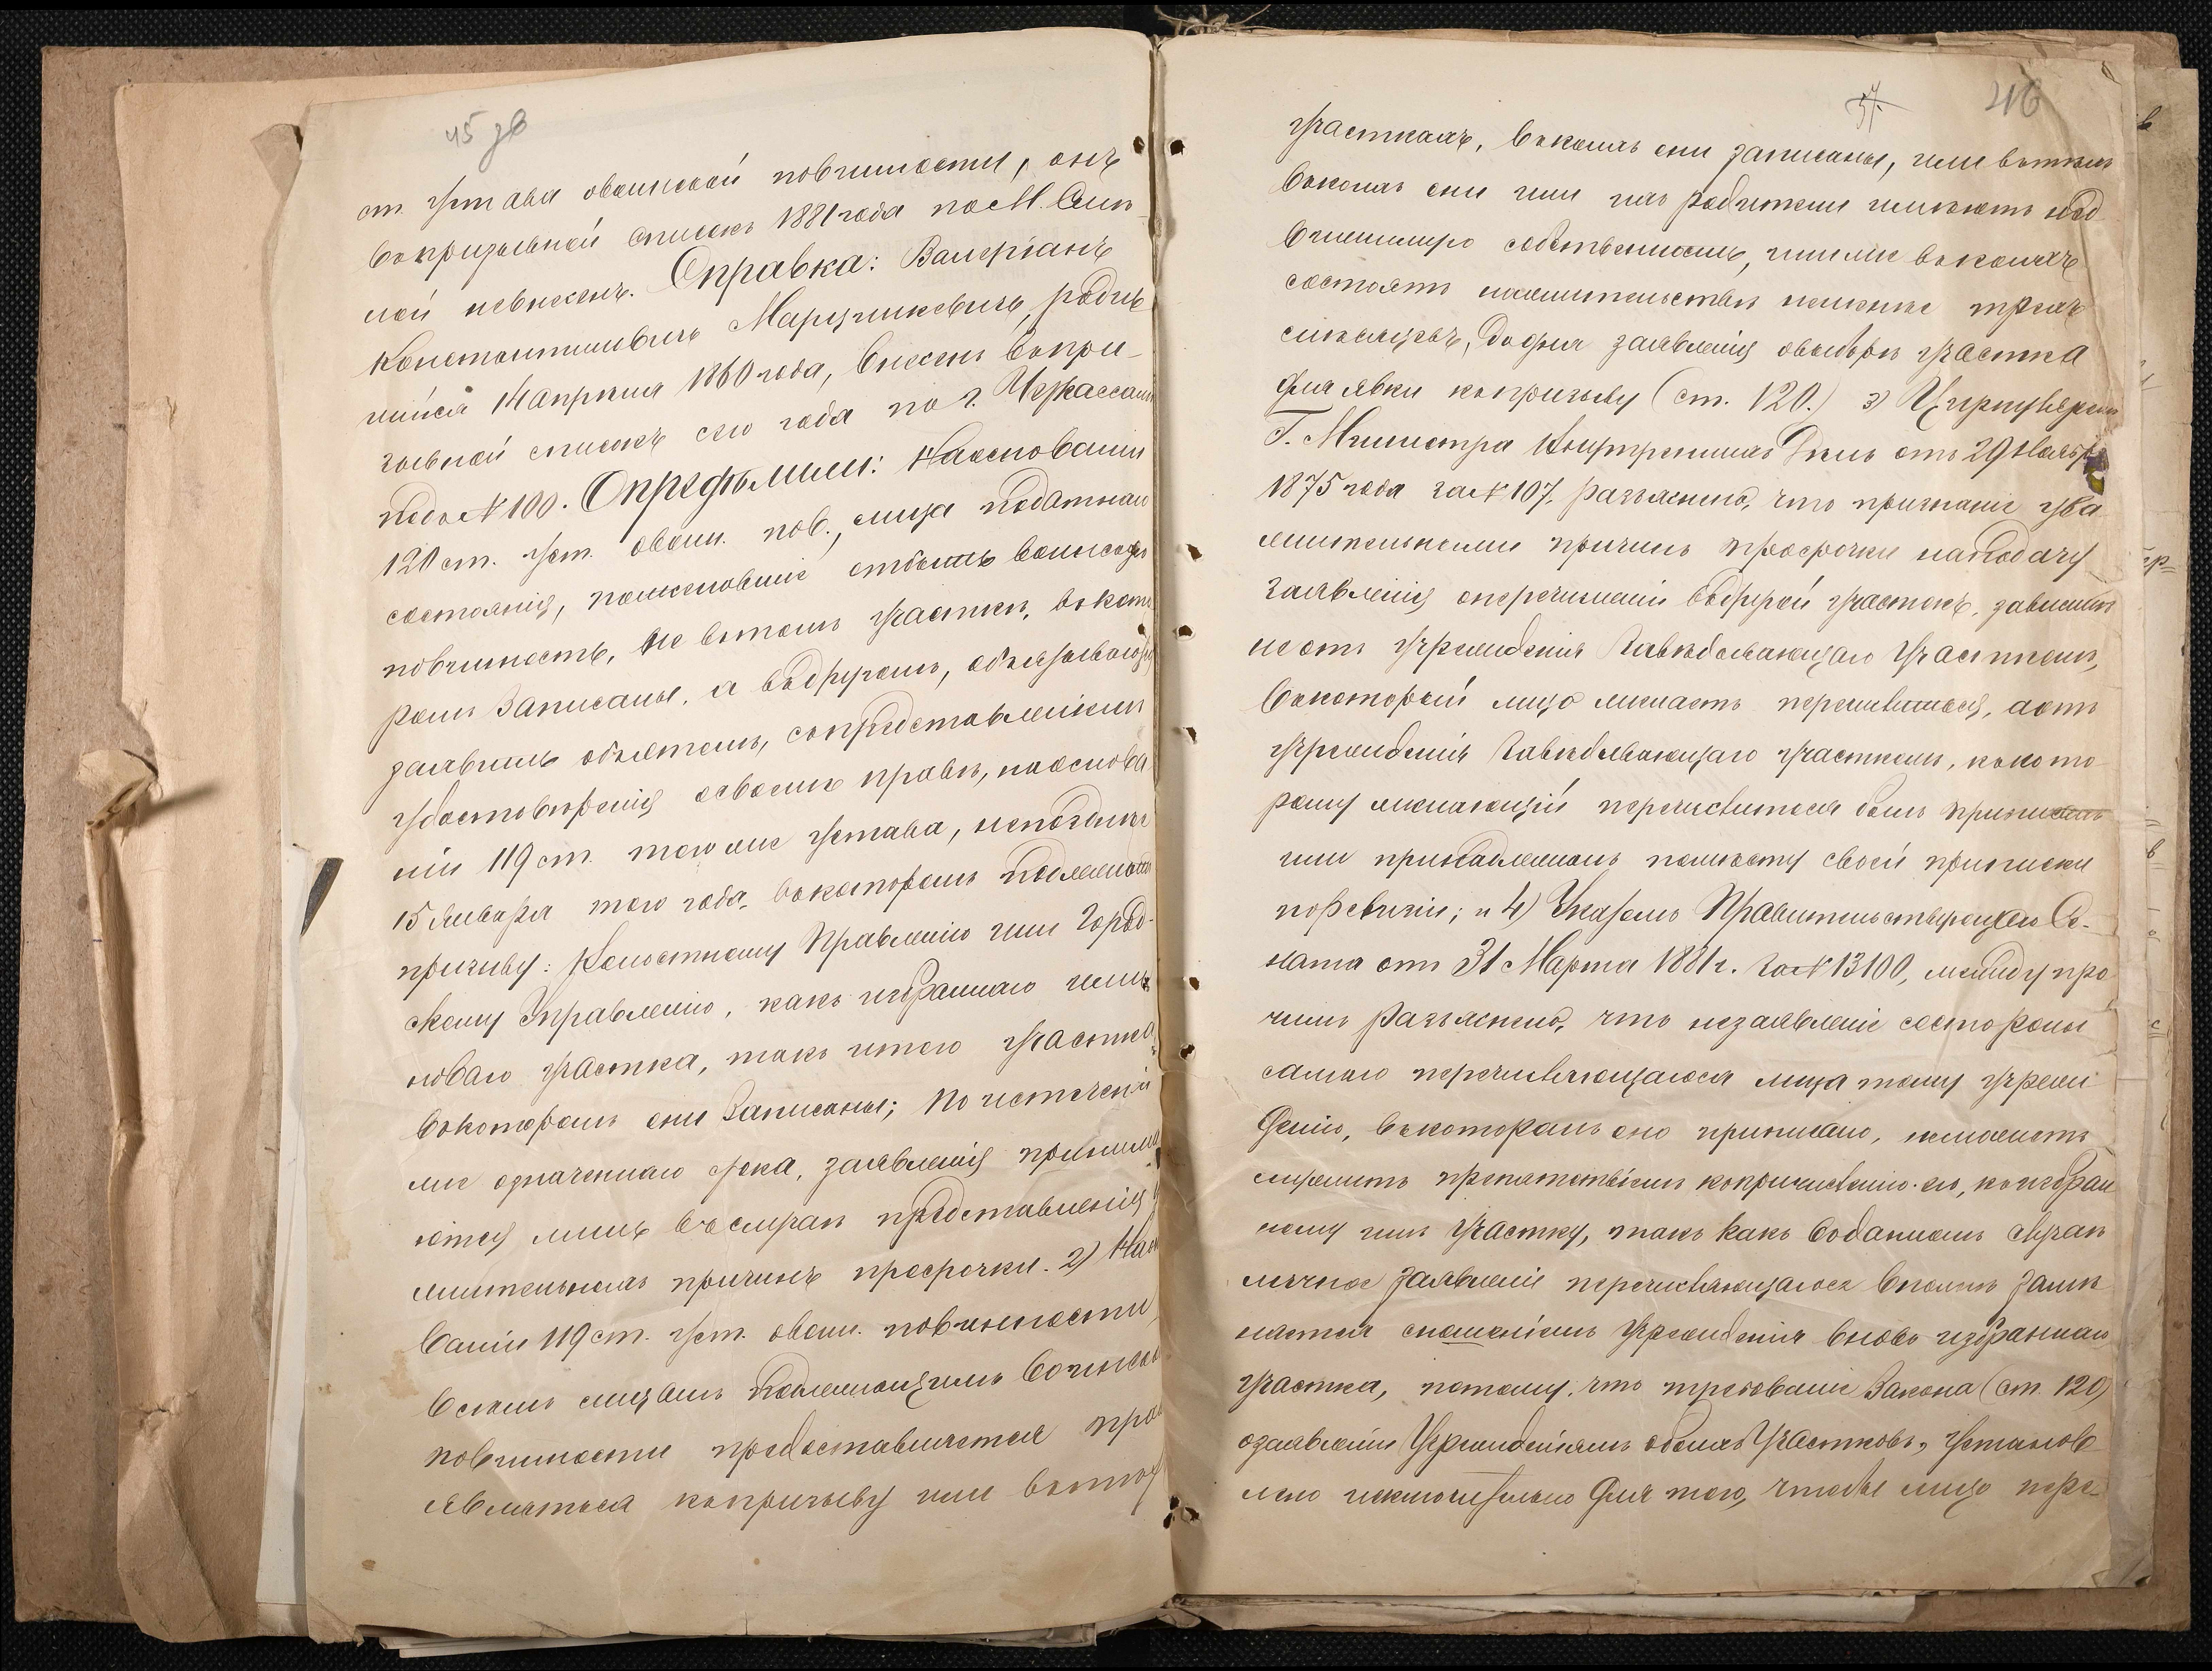 45 зв
ст. устава овоинской повинности, онъ
въпризывной списокъ 1881 года по М. Смѣ-
лой невнесенъ. Справка: Валеріанъ
Константиновичъ Марцинкевичъ, родив
шийся 14 апрѣля 1860 года, внесенъ въпри-
зывной списокъ сего года по г. Черкассамъ
подъ № 100. Опредѣлили: Наоснованіи
120 ст. уст. овоин. пов., лица податнаго
состоянія, пожелавшіе отбыть воинскую
повинность, не втомъ участкѣ, въкото
ромъ записаны, а въдругомъ, обязываются
заявить обэтомъ, съпредставленіемъ
удостовѣренія освоемъ правѣ, наоснова
ніи 119 ст. того же устава, непозднѣе
15 Января того года, въкоторомъ подлежатъ
призыву: Волостному Правленію или Город-
скому Управленію, какъ избраннаго ими
новаго участка, такъ итого участка,
въкоторомъ они записаны; По истеченіи
же означеннаго срока, заявленія принима
ются лишь въслучаѣ представленія у
жительныхъ причинъ просрочки. 2) Наосно
ваніи 119 ст. уст. овоин. повинности,
всѣмъ лицамъ подлежащимъ воинской
повинности предоставляется право
являться къпризыву или втѣхъ
57.
46
участкахъ, въкоихъ они записаны, или втѣхъ
въкоихъ они или ихъ родители имѣютъ нед
вижимую собственность, или же въкоихъ
состоятъ нажительствѣ неменѣе трехъ
мѣсяцевъ, додня заявленія овыборѣ участка
для явки къпризыву (ст. 120.) 3) Циркуляромъ
Г. Министра Внутреннихъ Дѣлъ отъ 29 Ноября
1875 года за № 107, разъяснено, что признаніе ува
жительными причинъ просрочки наподачу
заявленія оперечисленіи въдругой участокъ, зависитъ
не отъ учрежденія завѣдывающаго участкомъ,
въкоторый лицо желаетъ перечислиться, аотъ
учрежденія завѣдывающаго участкомъ, ккото
рому желающій перечислиться былъ приписанъ
или принадлежалъ помѣсту своей приписки
поревизіи; и 4) Указомъ Правительствующаго Се-
ната отъ 31 Марта 1881 г. за № 13100, между про
чимъ разъяснено, что незаявленіе состороны
самаго перечисляющагося лица тому учреж
денію, въкоторомъ оно приписано, неможетъ
служить препятствіемъ къпричисленію его, къизбран
ному имъ участку, такъ какъ воданномъ случаѣ
личное заявленіе перечисляющагося вполнѣ замѣ
няется сношеніемъ учрежденія вновь избраннаго
участка, потому, что требованіе Закона (ст. 120)
озаявленіи Учрежденіямъ обоихъ Участковъ, установ
лено исключительно для того, чтобы лицо пере-